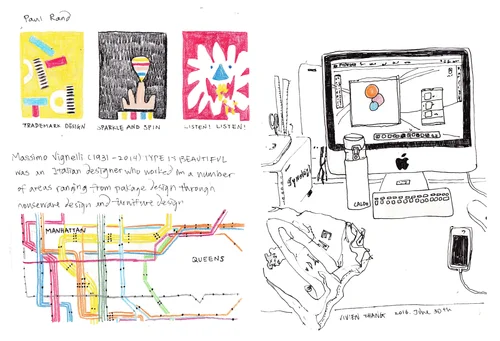 Paul Rand
TRADEMARK DESIGN
SPARKLE AND SPIN
LISTEN! LISTEN!
Massimo Vignelli (1931-2014) TYPE IS BEAUTIFUL
was an Italian designer who worked in a number
of areas ranging from package design through
houseware design and furniture design
MANHATTAN
QUEENS
CALDO
June 30TH